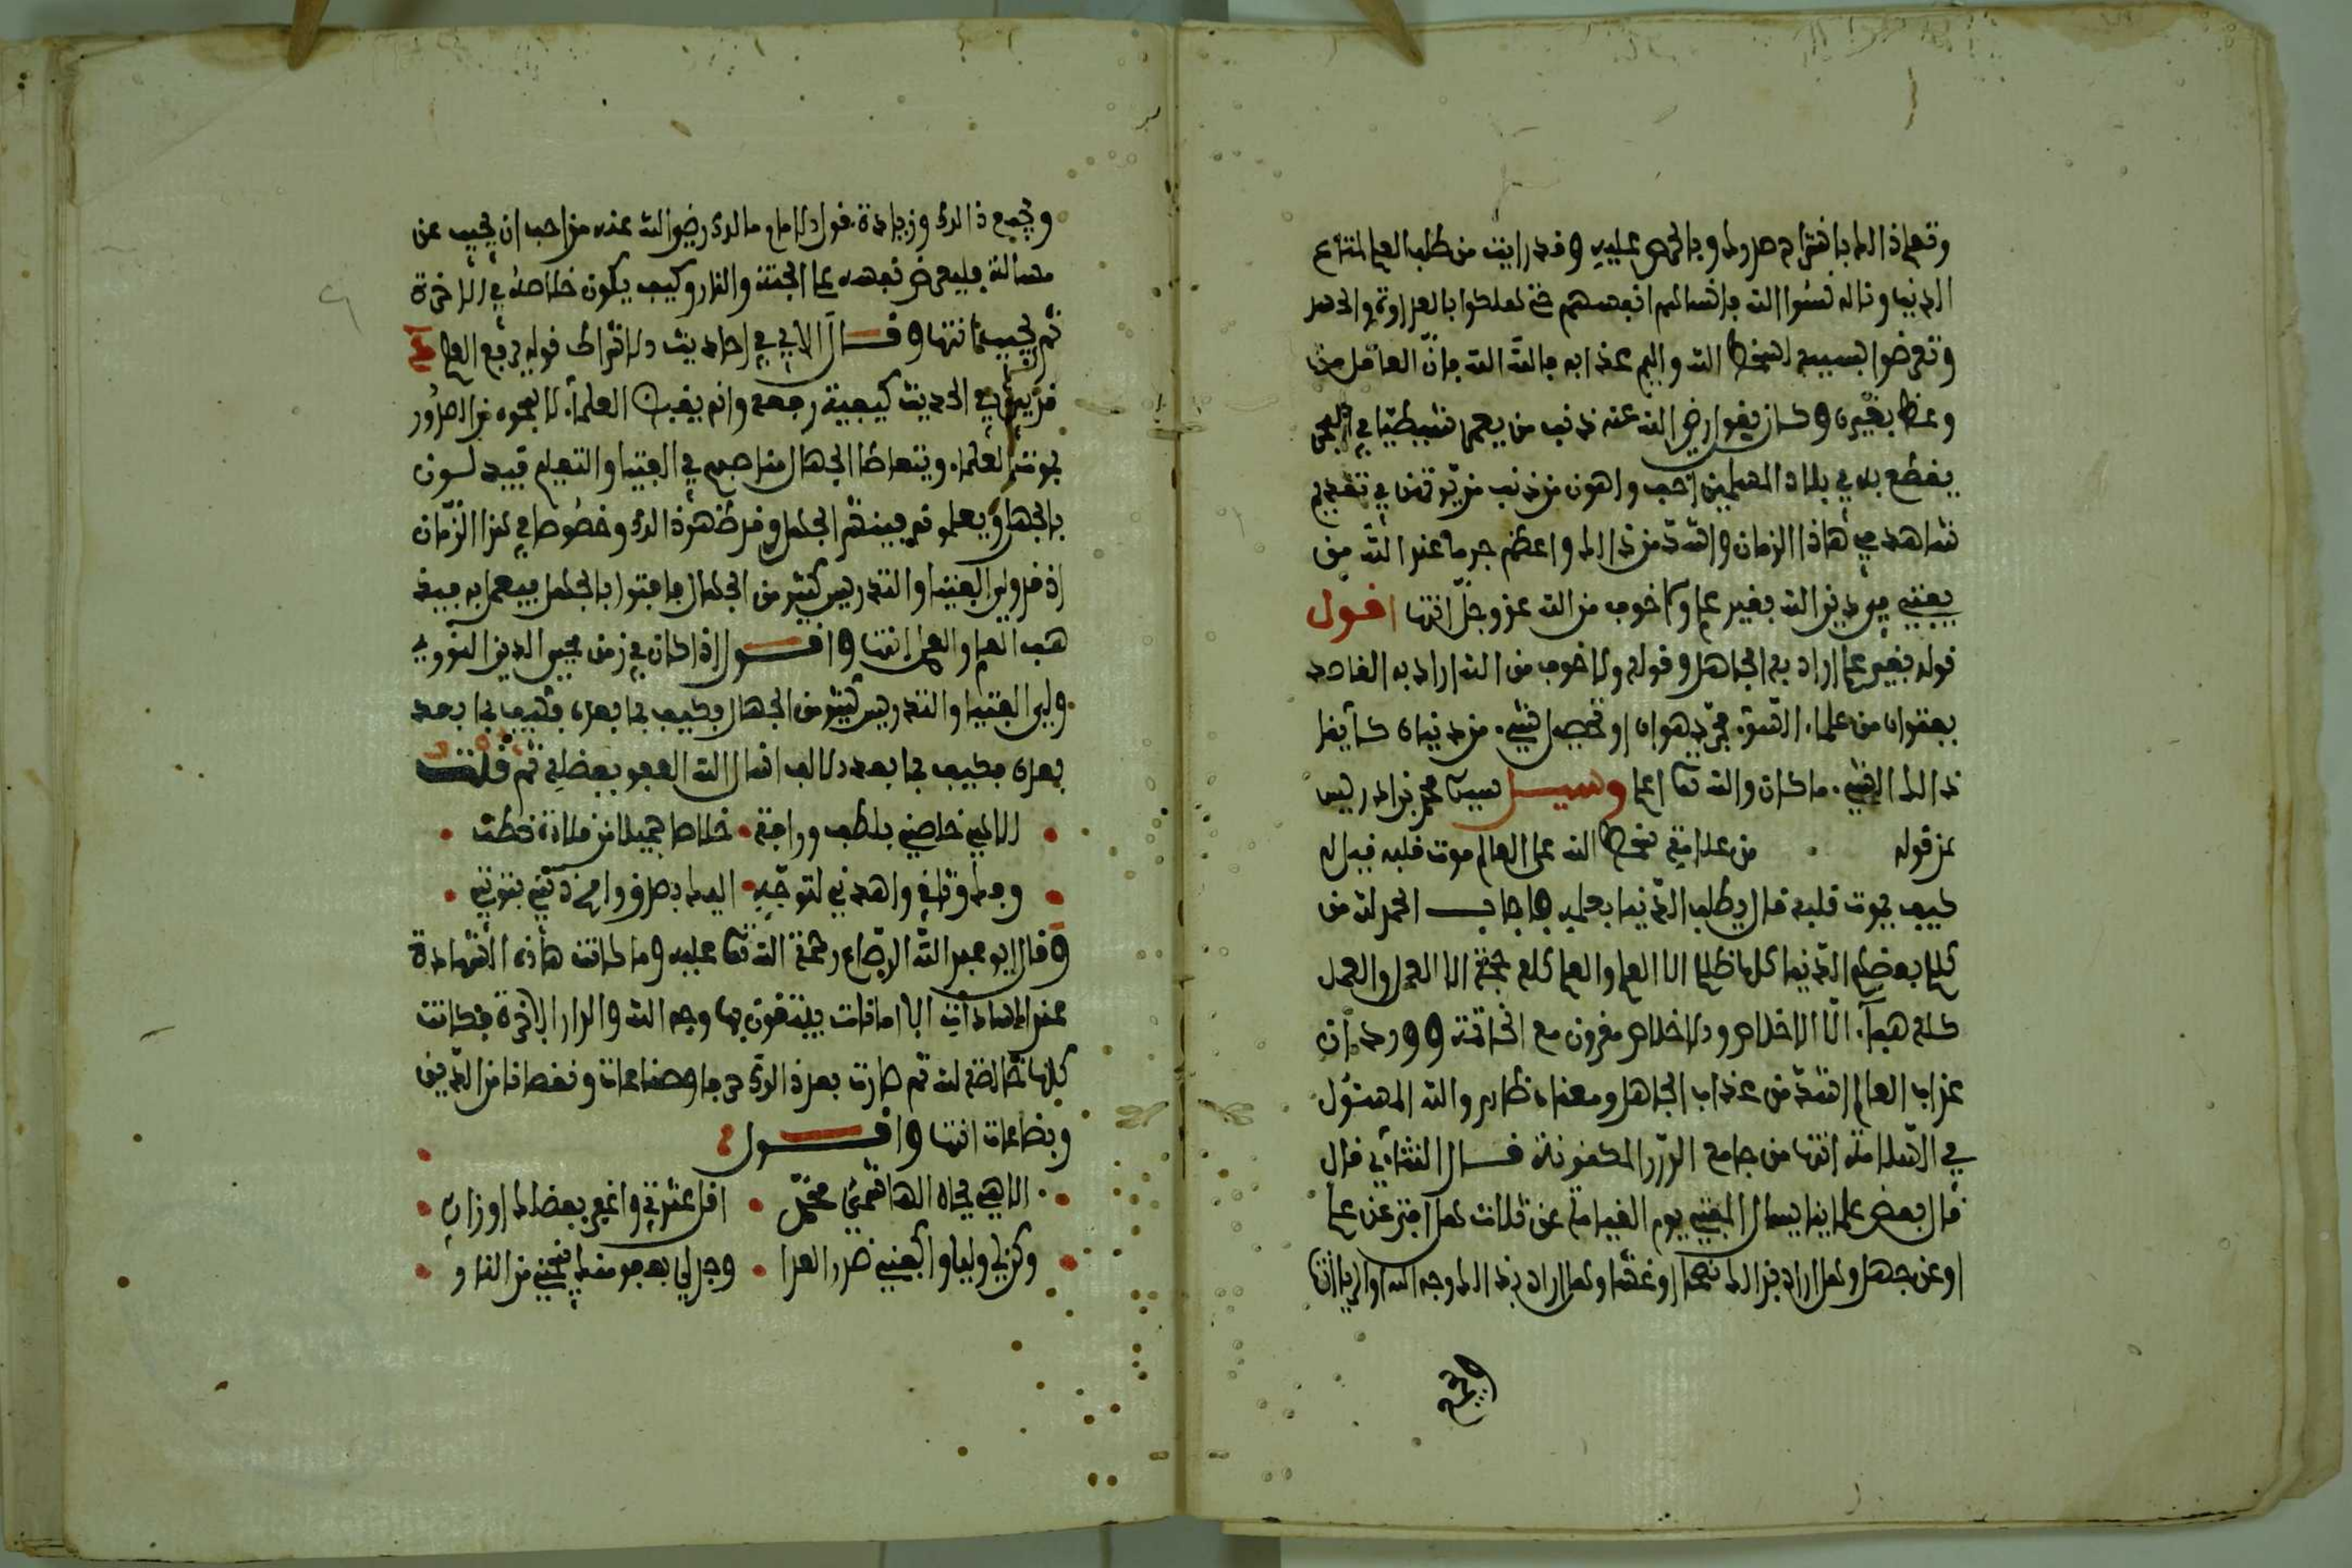 وتعلم ذالك بافتراء صروك وبالحرص عليه وقد رايت من طلب العلم لمتاع
الدنيا وناله نسوا الله فانساهم انفسهم حتى لهلكوا بالعداوة والحسد
وتعرضوا بسببه لسخط الله واليم عذابه فالله الله فان العاقل من
وعظ بغيره وكان يقول رضي الله عنه ذنب من يعمر
يقطع به في بلاد المسلمين احب واهون من ذنب من في تقديم
نشاهد في هاذا الزمان واشد من ذالك واعظم جرما عند الله من
يفتي في دين الله بغير علم ولا خوف من الله عز وجل انتها افول
قوله بغير علم اراد به الجاهل وقوله ولا خوف من الله اراد به القاصد
بفتواه من علماء السوء مجرد هواه او تحصيل شيء من دنياه كايفا
ذالك الشيء ما كان والله تعا اعلم وسيل سيدي محمد بن ادريس
عن قوله من علامة سخط الله على العالم موت قلبه فيل له
كيف يموت قلبه قال يطلب الدنيا بعلمه فاجاب الحمد لله من
كلام بعضهم الدنيا كلها ظلمة الا العلم والعلم كله حجة الا العمل والعمل
كله هباء الا الاخلاص والاخلاص مقرون مع الخاتمة وورد ان
عذاب العالم اشد من عذاب الجاهل ومعناه ظاهر والله المسئول
في السلامة انتها من جامع الدرر المكنونة قال التتائي قال
قال بعض علماينا يسال المفتي يوم القيامة عن ثلاث هل افتى عن علم
او عن جهل وهل اراد بذالك نصحا او غشا وهل اراد بذالك وجه الله او الريا انتها
وجميع ذالك وزيادة قول الامام مالك رضي الله عنه من احب ان يجيب عن
مسالة فليعرض نفسه على الجنة والنار وكيف يكون خلاصه في الاخرة
ثم يجيب انتها وقال الابي في احاديث الاشراط قوله يرفع العلم
قد بين في الحديث كيفية رفعه وانه يقبض العلماء لا بمحوه من الصدور
بموت العلماء ويتعاطا الجهال مناصبهم في الفتيا والتعليم فيسئلون
بالجهل ويعلمونه فينتشر الجهل وقد ظهر ذالك وخصوصا في هذا الزمان
اذ قد ولي الفتيا والتدريس كثير من الجهال فافتوا بالجهل فيعمل به فيذ
هب العلم والعمل انتها واقول اذا كان في زمن محيي الدين النووي
ولي الفتيا والتدريس كثير من الجهال فكيف بما بعده فكيف بما بعد
بعده فكيف بما بعد الالف انسال الله العفو بفضله ثم قلت
الاهي خلصني بلطف ورافة خلاصا جميلا من ملاذة خطت
وجد وتلاف واهدني لتوجه اليك بصدق وامح زلتي بتوبتي
وقال ابو عبد الله الرصاع رحمة الله تعا عليه وما كانت هاذه الشهادة
عند السادات الا امانات يبتغون بها وجه الله والدار الاخرة فكانت
كلها خالصة لله ثم صارت بعد ذالك حرفا وصناعات ونقصانا من الدين
وبضاعات انتها واقول
الاهي بجاه الهاشمي محمد اقل عثرتي واغفر بفضلك اوزاري
وكن لي وليا واكفني ضرر العدا وجد لي بعفو منك ينجني من النار